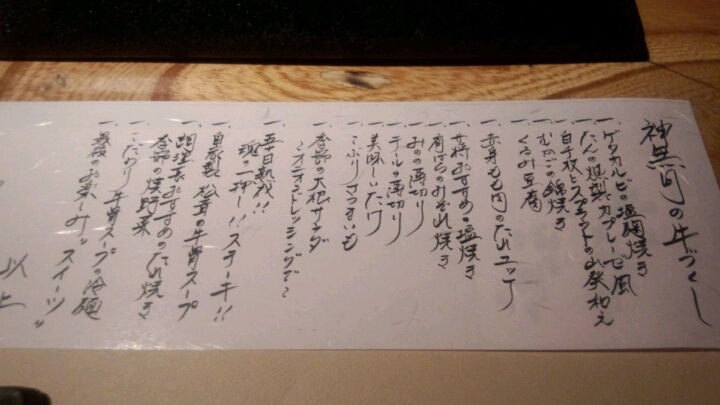 神黒町の牛づくし
一、ゲタカルビの塩麹焼き
一、たんの燻製カプレーゼ風
一、白子板とスプラウトの山葵和え
一、むかごの錦焼き
一、くるみ豆腐
一、赤身もも肉のたれユッケ
一、女将おすすめの塩焼き
一、肩ばらのみぞれ焼き
一、みのの薄切り
一、テールの薄切り
一、美味しいたけ
一、こぶりさつまいも
一、春節の大根サラダ
〜オニオンドレッシングで〜
一、五十日熟成!!
魂の一押し!!ステーキ!!
一、自家製 松茸の牛骨スープ
一、調理長おすすめのたれ焼き
一、春節の焼野菜
一、こだわり 牛骨スープの冷麺
一、最後のお楽しみ"スイーツ"
以上